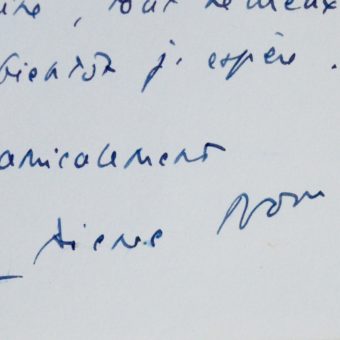 , tout le mieux
bientôt j'espère.
amicalement
Pierre